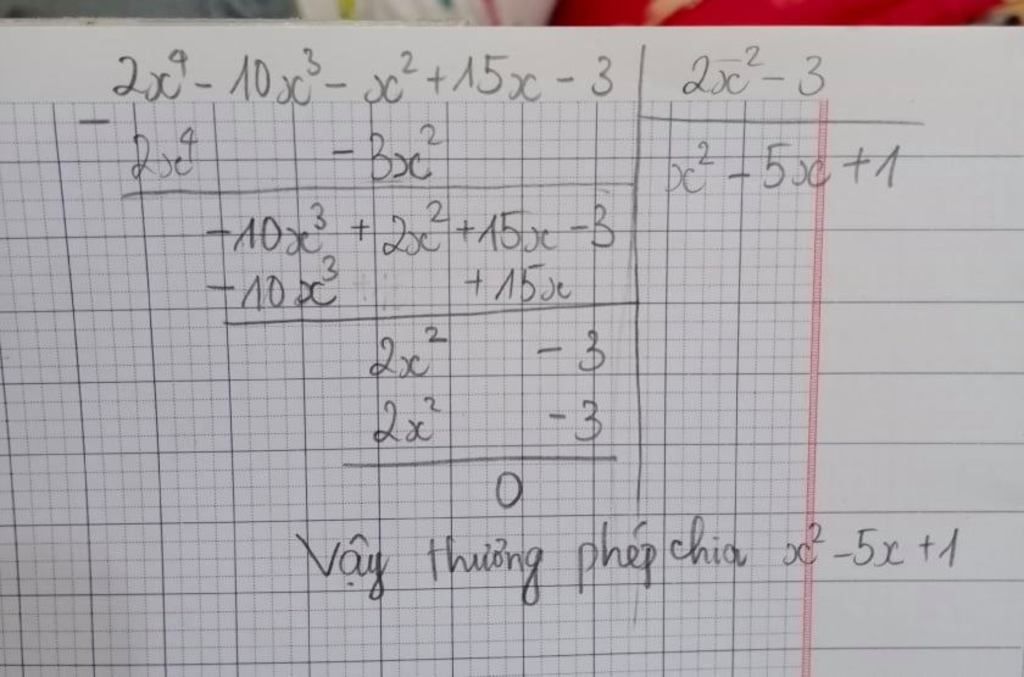 2x⁴ - 10x³ - x² + 15x - 3 | 2x² - 3
-
2x⁴ - 3x² | x² - 5x + 1
-10x³ + 2x² + 15x - 3
-10x³ + 15x
2x² - 3
2x² - 3
0
Vậy thương phép chia x² - 5x + 1